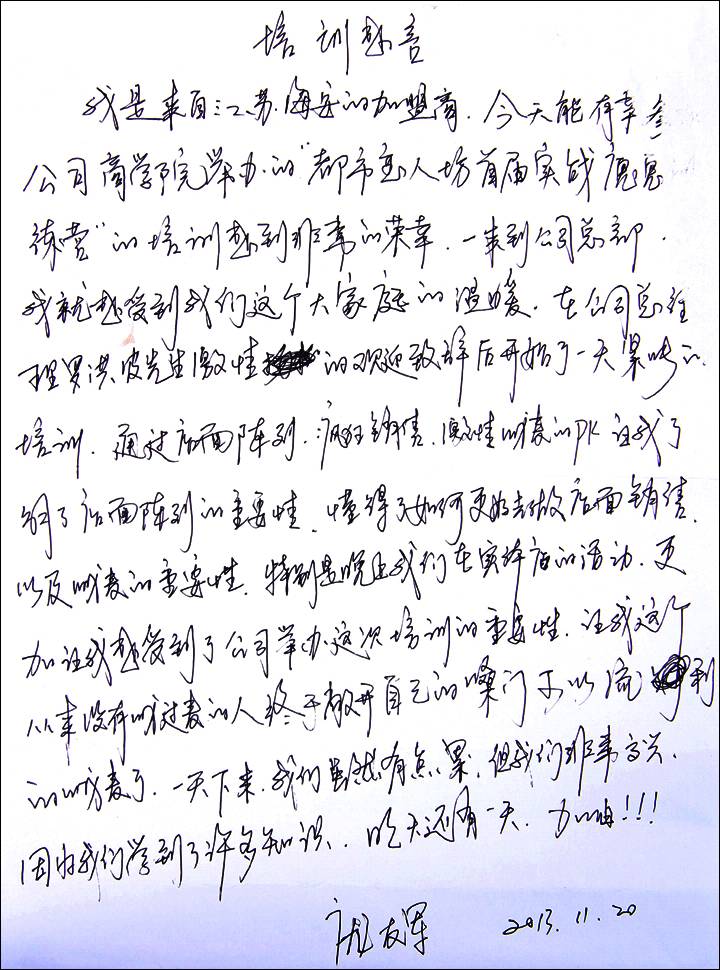 培训感言
我是来自江苏海安的加盟商，今天能有幸参
公司商学院举办的“都市恋人坊首届实战魔鬼
练营”的培训感到非常的荣幸，一来到公司总部，
我就感受到我们这个大家庭的温暖，在公司总经
理罗洪波先生激情的欢迎致辞后开始了一天紧张的
培训，通过店面陈列，疯狂销售，激情喊麦的PK让我了
解了店面陈列的重要性，懂得了如何更好去做店面销售，
以及喊麦的重要性，特别是晚上我们在实体店的活动，更
加让我感受到了公司举办这次培训的重要性，让我这个
从来没有喊过麦的人终于敞开自己的嗓门可以流利
的喊麦了，一天下来，我们虽然有点累，但我们非常高兴，
因为我们学到了许多知识，明天还有一天，加油！！！
友军 2013.11.20